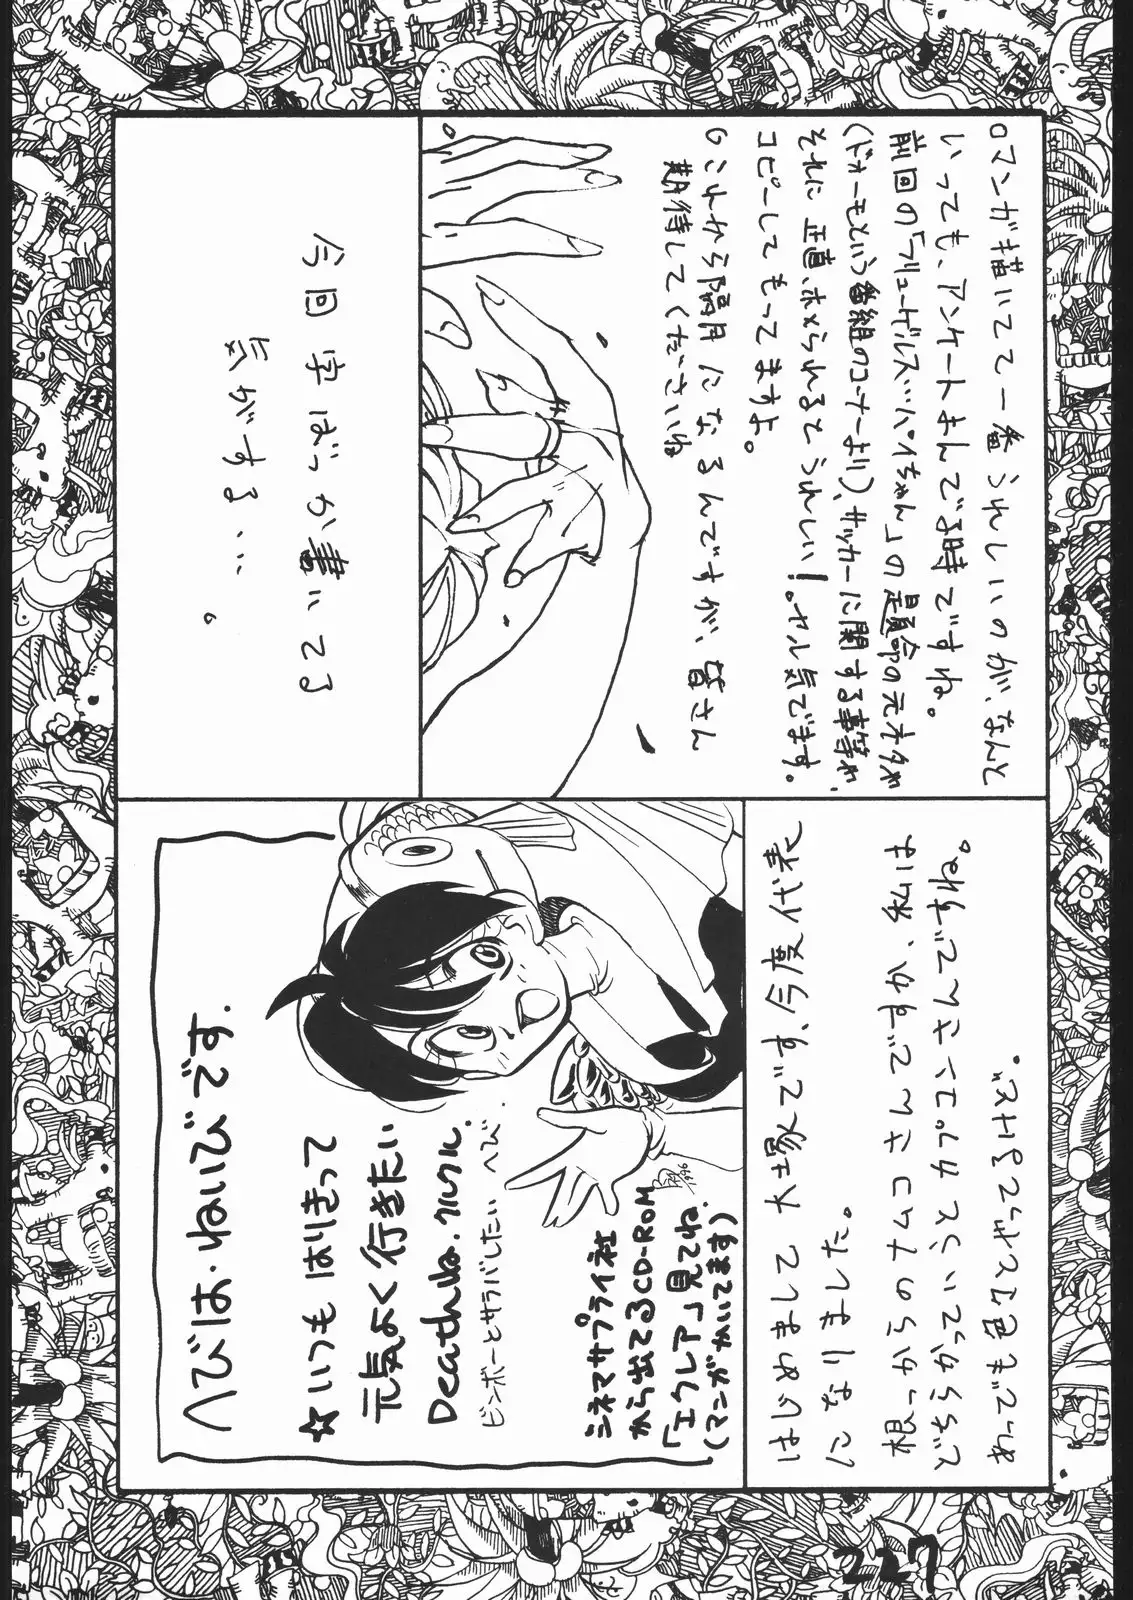 ○マンガ描いてて一番うれしいのが、なんと
いっても、アンケートよんでる時ですね。
前回の「フリューゲルス…パイちゃん」の
元ネタが
(ドォーモという番組のコーナーより)、サッカーに関する事等が、
それに正直、ホメられるとうれしい!。ヤル気でます。
コピーしてもってますよ。
○これから隔月になるんですが、皆さん
期待してくださいね
今回字ばっか書いてる
気がする…。
はじめまして大塚です、今度代表
になりました。
は、私
根っからのナムコさんですが、
でちらかっていうとカプコンさんですね。
あしでも色々スかってるけどネ。
へびは・ねいびです.
☆いつもはりきって
元気よく行きたい
Deathね.クルクル.
ビンボーとサラバしたいへび.
1996
シネマサプライ社
から出てるCD-ROM
「エクレア」見てね.
(マンガかいてます)
227